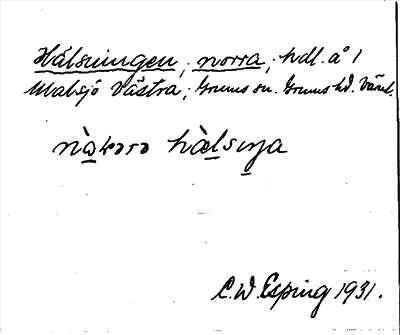 Hälsningen, norra, hdl. å 1
Malsjö Västra, Grums sn. Grums hd. Värml.
hälsıŋa
C.W. Esping 1931.